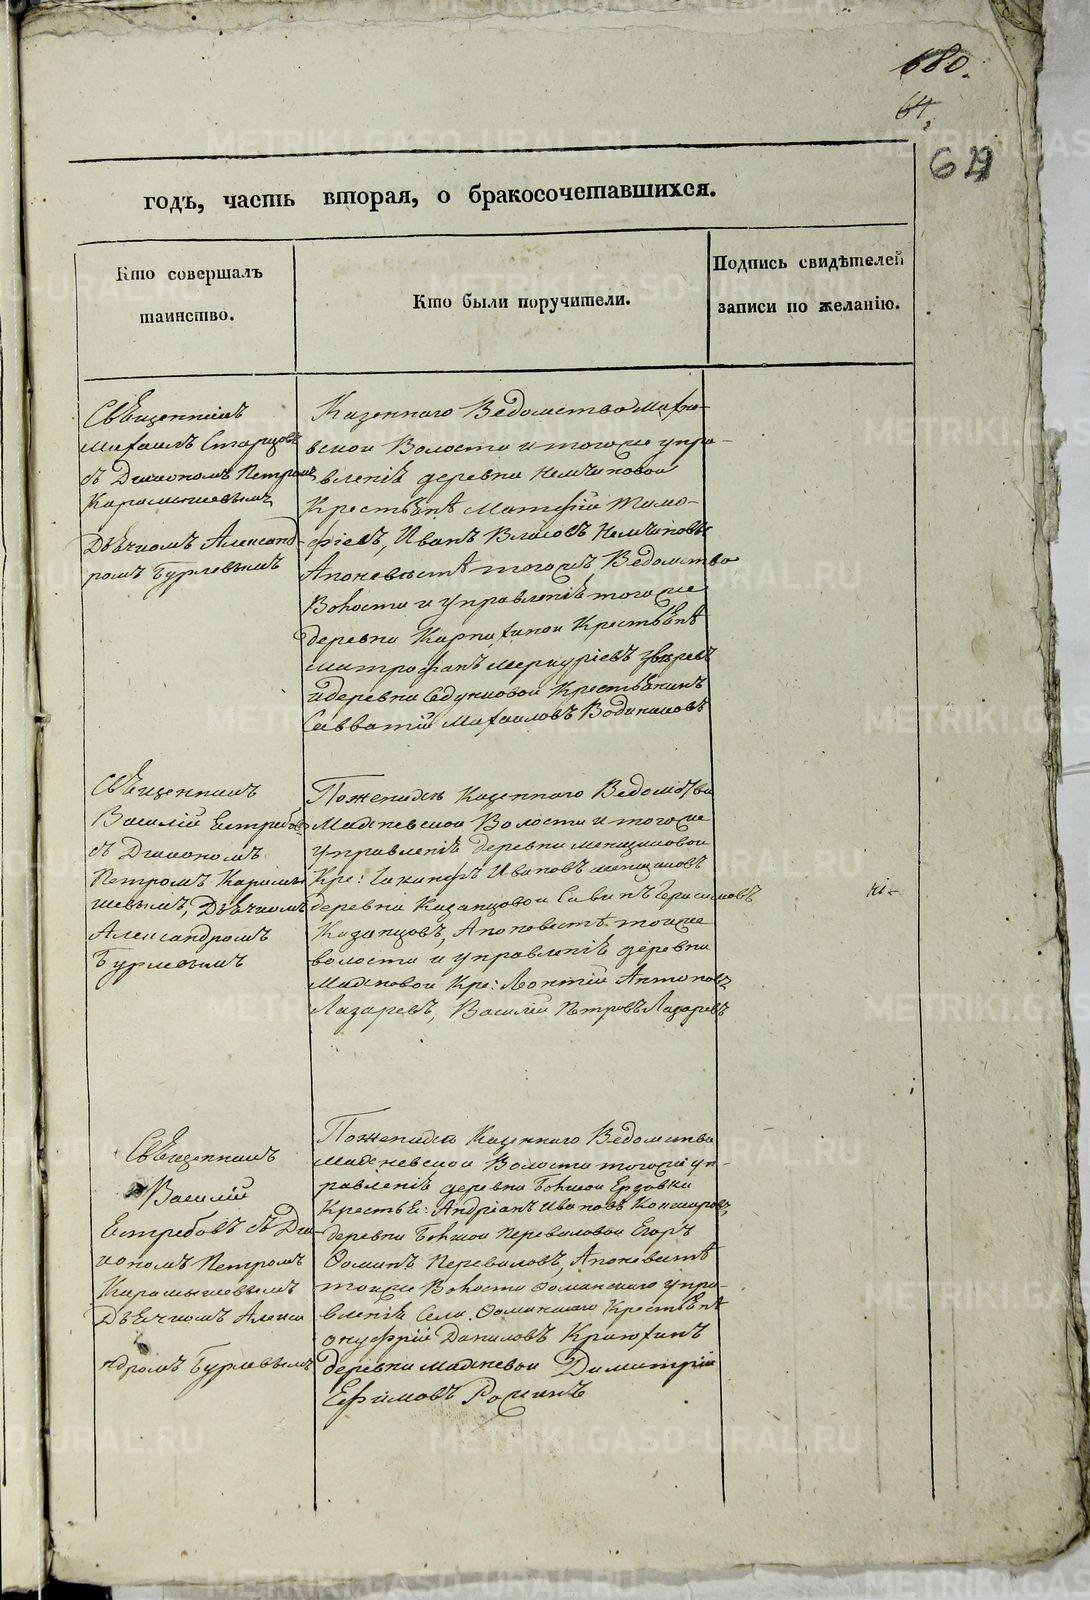 680.
64.
годъ, часть вторая, о бракосочетавшихся.
Кто совершалъ
таинство.
Кто были поручители.
Подпись свидѣтелей
записи по желанію.
Священникъ
Михаилъ Старцовъ
съ Діакономъ Петромъ
Карамышевымъ
Дьячкомъ Александ
ромъ Бурлевымъ
Казеннаго Ведомства Махне-
вской Волости и того же упра-
вленія деревни Немчиновой
Крестьяне Матфій Тимо-
фіевъ, Иванъ Власовъ Немчиновы
А поневесте того жъ Ведомства
Волости и Управленія того же
деревни Карпихиной Крестьяне
Митрофанъ Меркуріевъ Звѣревъ
и деревни Седуновой Крестьянинъ
Савватій Михайловъ Водиниковъ
Священникъ
Василій Ястребовъ
съ Діакономъ
Петромъ Карамы
шевымъ, Дьячкомъ
Александромъ
Бурлевымъ
По женихѣ Казеннаго Ведомства
Махневской Волости и того же
управленія деревни
Кре: Іакинфъ Ивановъ
деревни Казанцовой Савинъ Герасимовъ
Казанцовъ, А поневесте той же
волости и управленія деревни
Маскновой Кре: Леонтій Антоновъ
Лазаревъ, Василій Петровъ Лазаревъ
Священникъ
Василій
Естребовъ съ Діа-
кономъ Петромъ
Карамышевымъ
Дьячкомъ Алекса
ндромъ Бурлевымъ
По женихѣ Казеннаго Ведомства
Махневской Волости того же уп-
равленія деревни Большой Ерзовки
Крестья: Андріанъ Ивановъ Коншаровъ,
деревни Большой Переваловой Егоръ
Фоминъ Переваловъ, А поневесте
той же Волости Фоминскаго упра-
вленія Села Фоминскаго Крестьяне
Онуфрій Даниловъ Крюхинъ
деревни Махневой Димитрій
Ефимовъ Рожинъ
METRIKI.GASO-URAL.RU